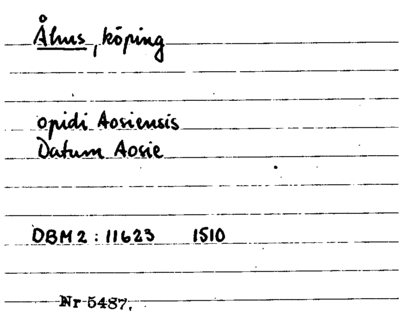 Åhus, köping
opidi Aosiensis
Datum Aosie
DBM 2 : 11623 1510
Nr 5487.